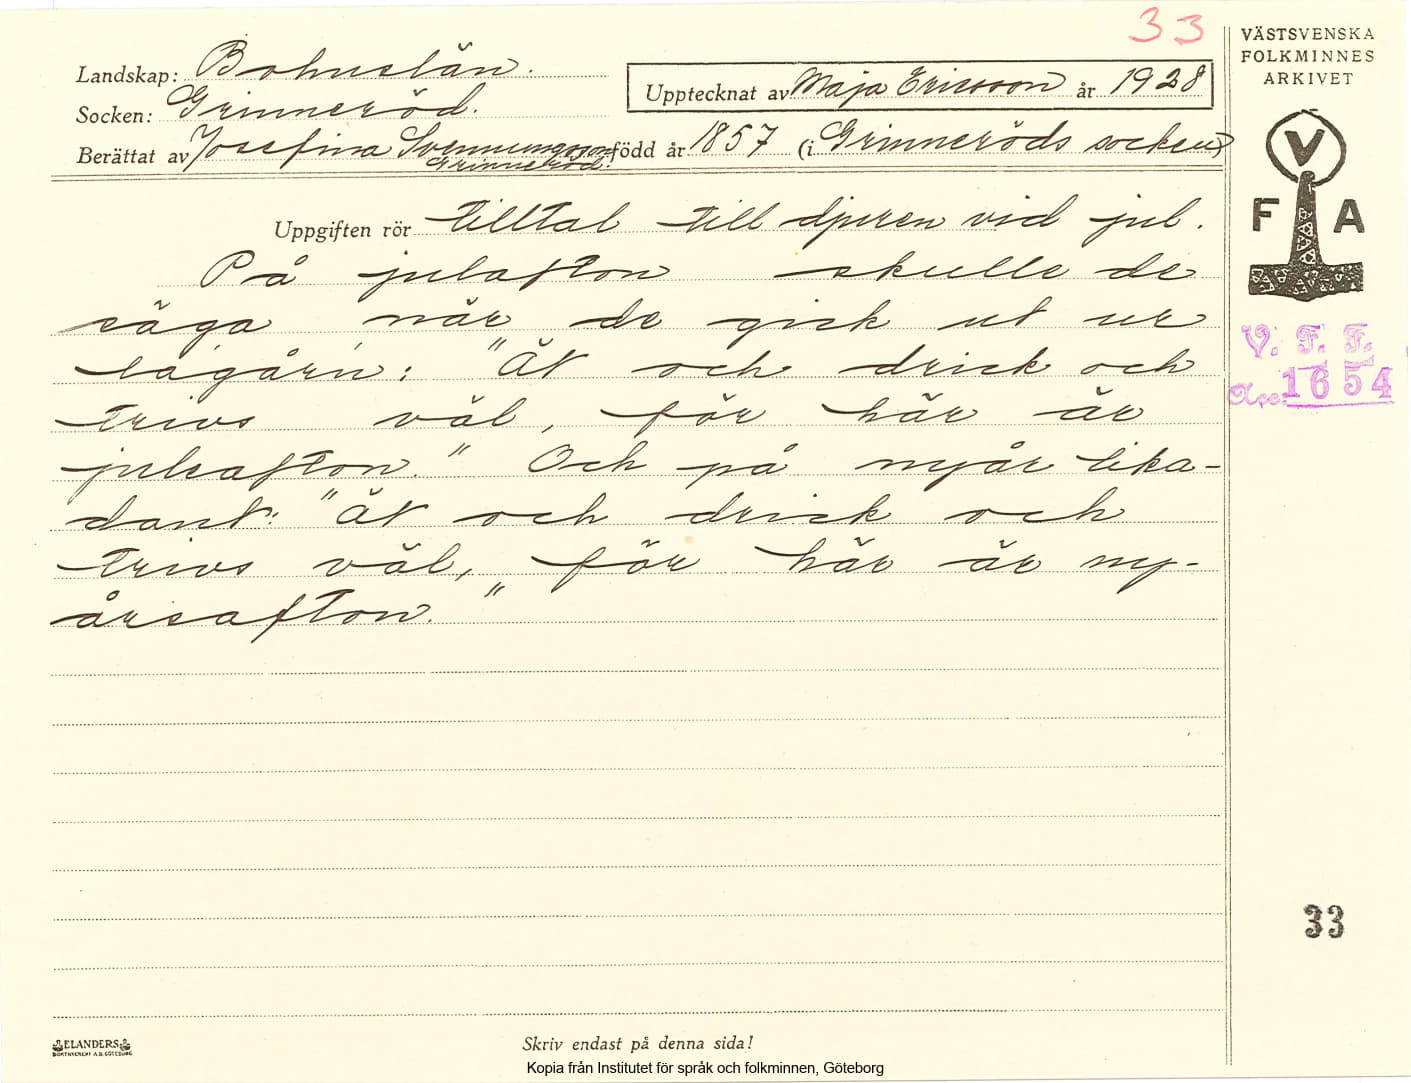 33
VÄSTSVENSKA
FOLKMINNES
ARKIVET
Landskap: Bohuslän.
Upptecknat av Maja Ericsson år 1928
Socken: Grinneröd.
Berättat av Josefina Svenningsson född år 1857 (i Grinneröds socken)
Grinneröd.
V
F A
Uppgiften rör tilltal till djuren vid jul.
På julafton skulle de
säga när de gick ut ur
lagårn: "Ät och drick och
trivs väl, för här är
julafton." Och på nyår lika-
dant: "Ät och drick och
trivs väl, för här är ny-
årsafton."
V. F. F.
Acc. 1654
33
ELANDERS
BOKTRYCKERI A.B. GÖTEBORG
Skriv endast på denna sida!
Kopia från Institutet för språk och folkminnen, Göteborg